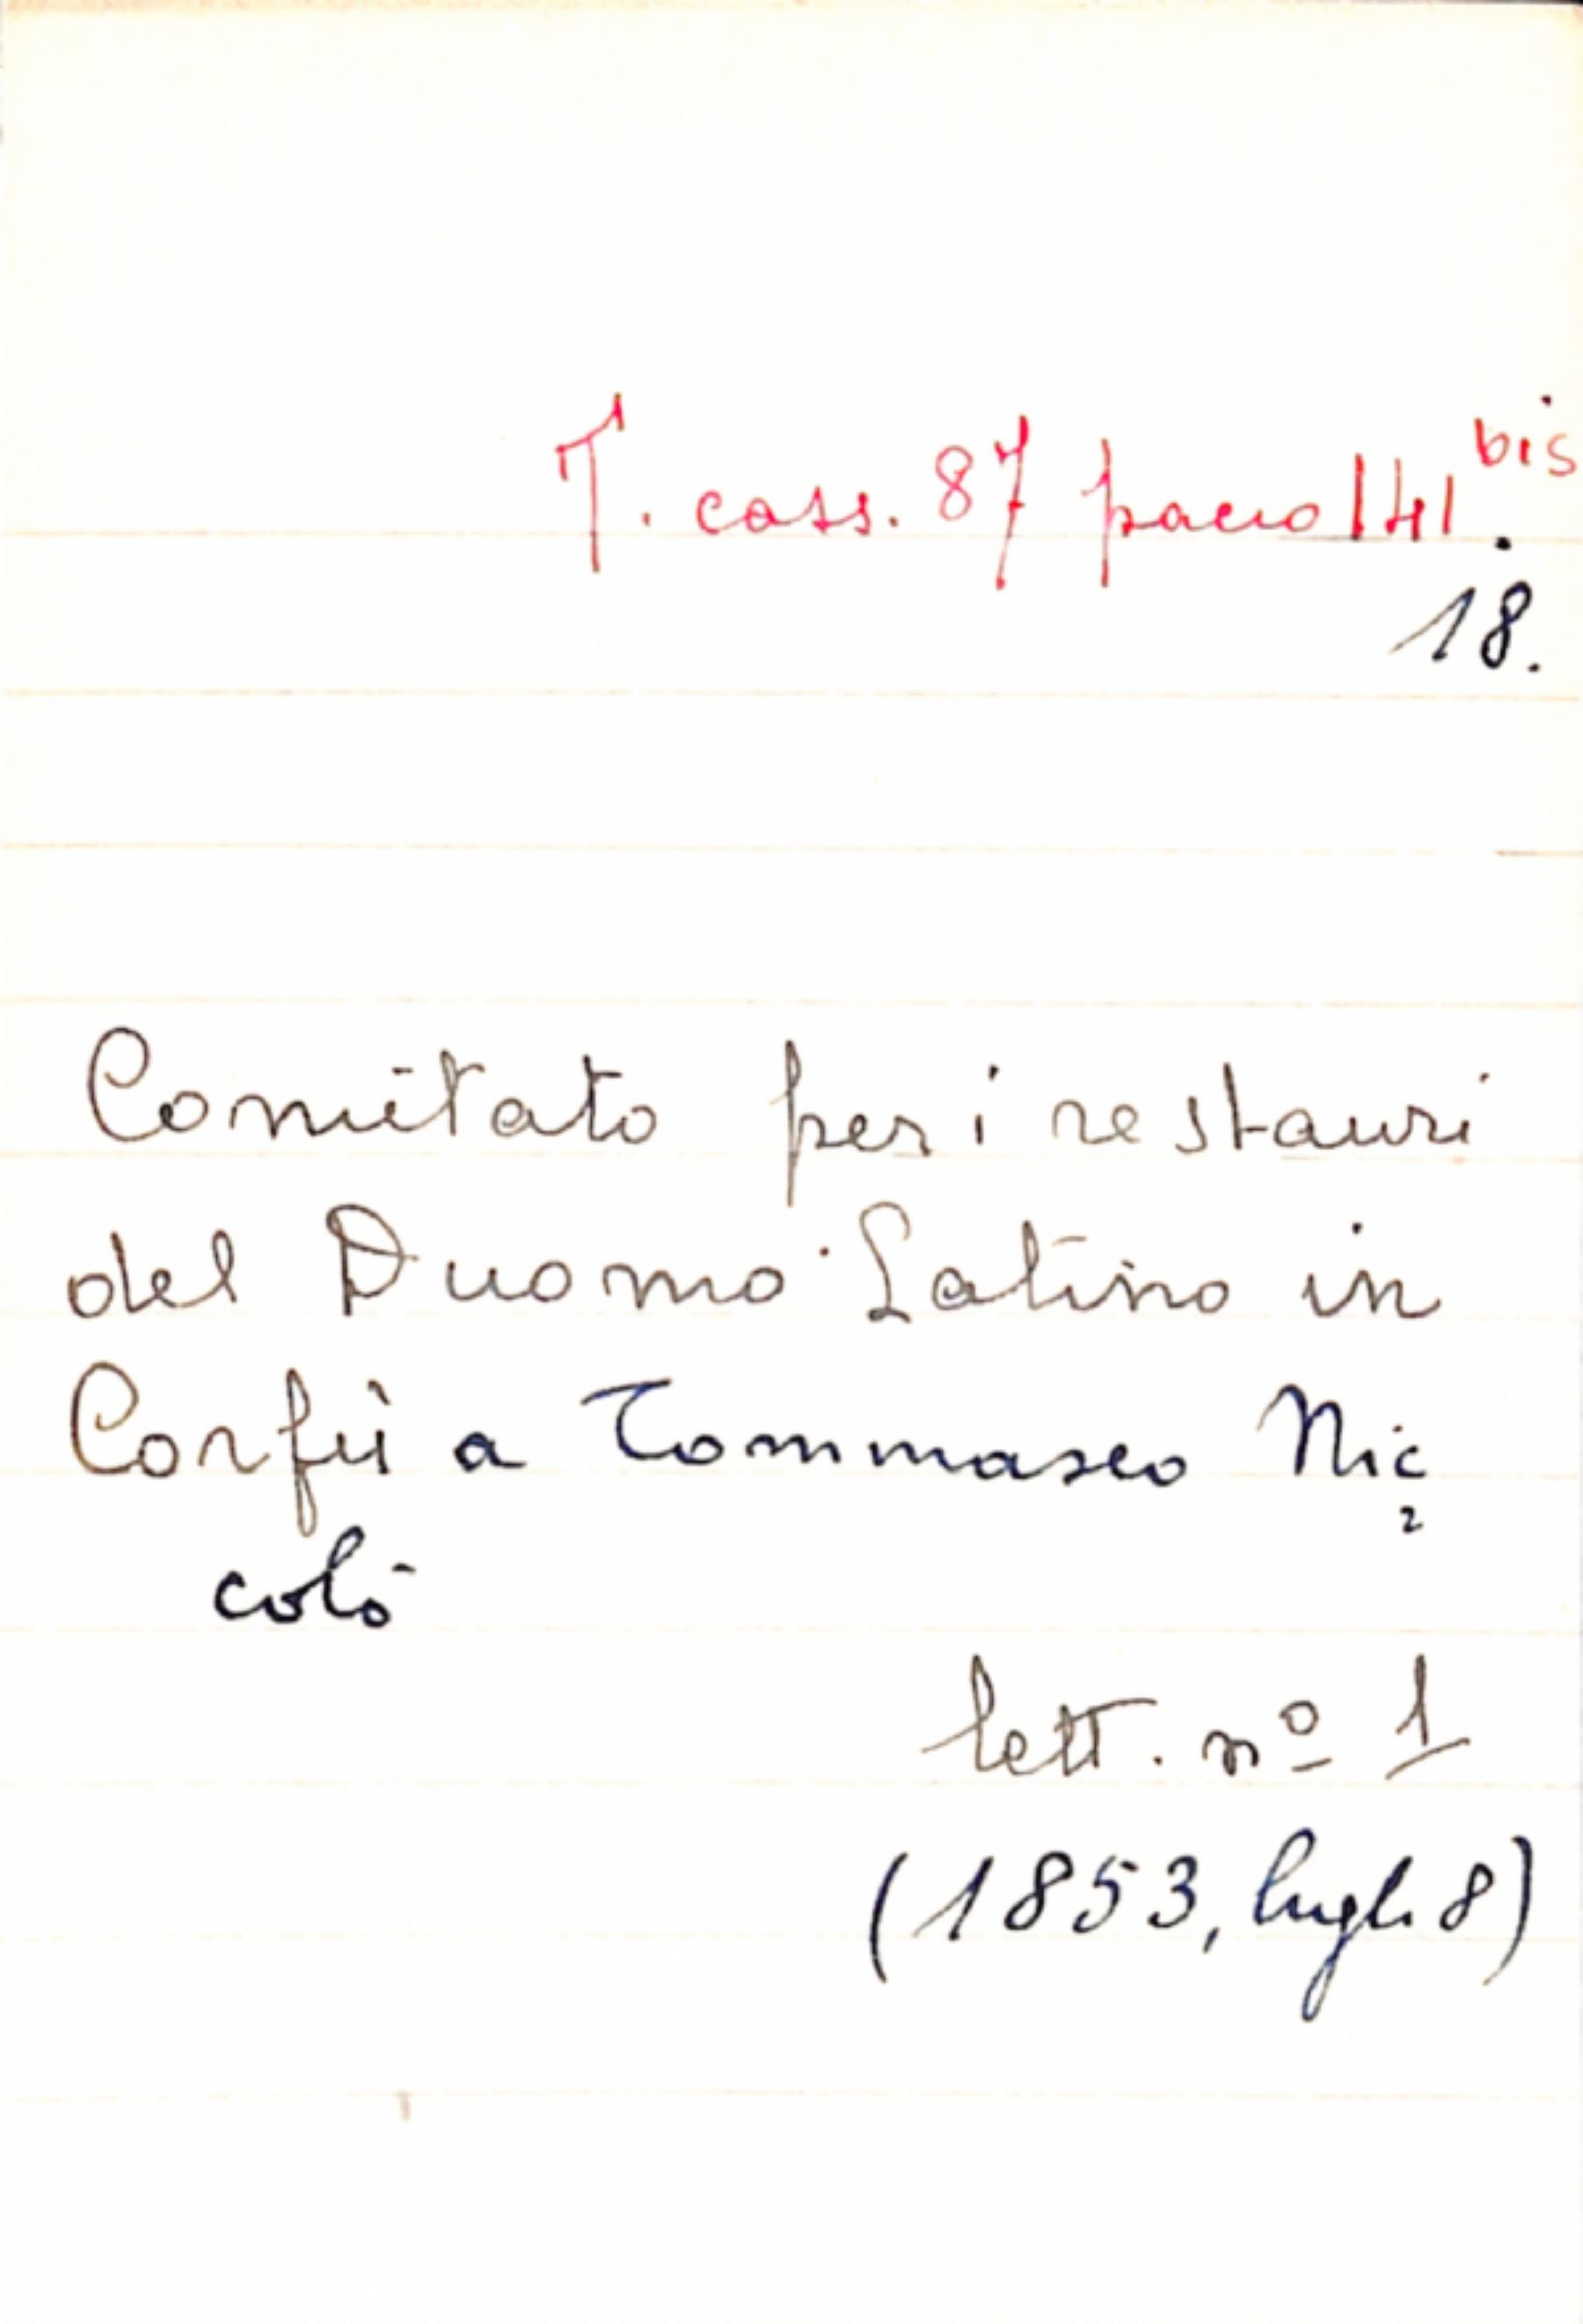 T. cass. 87 pacco 141 bis.
18.
Comitato per i restauri
del Duomo Latino in
Corfù a Tommaseo Nic
colò
lett. nº 1
(1853, lugl. 8)